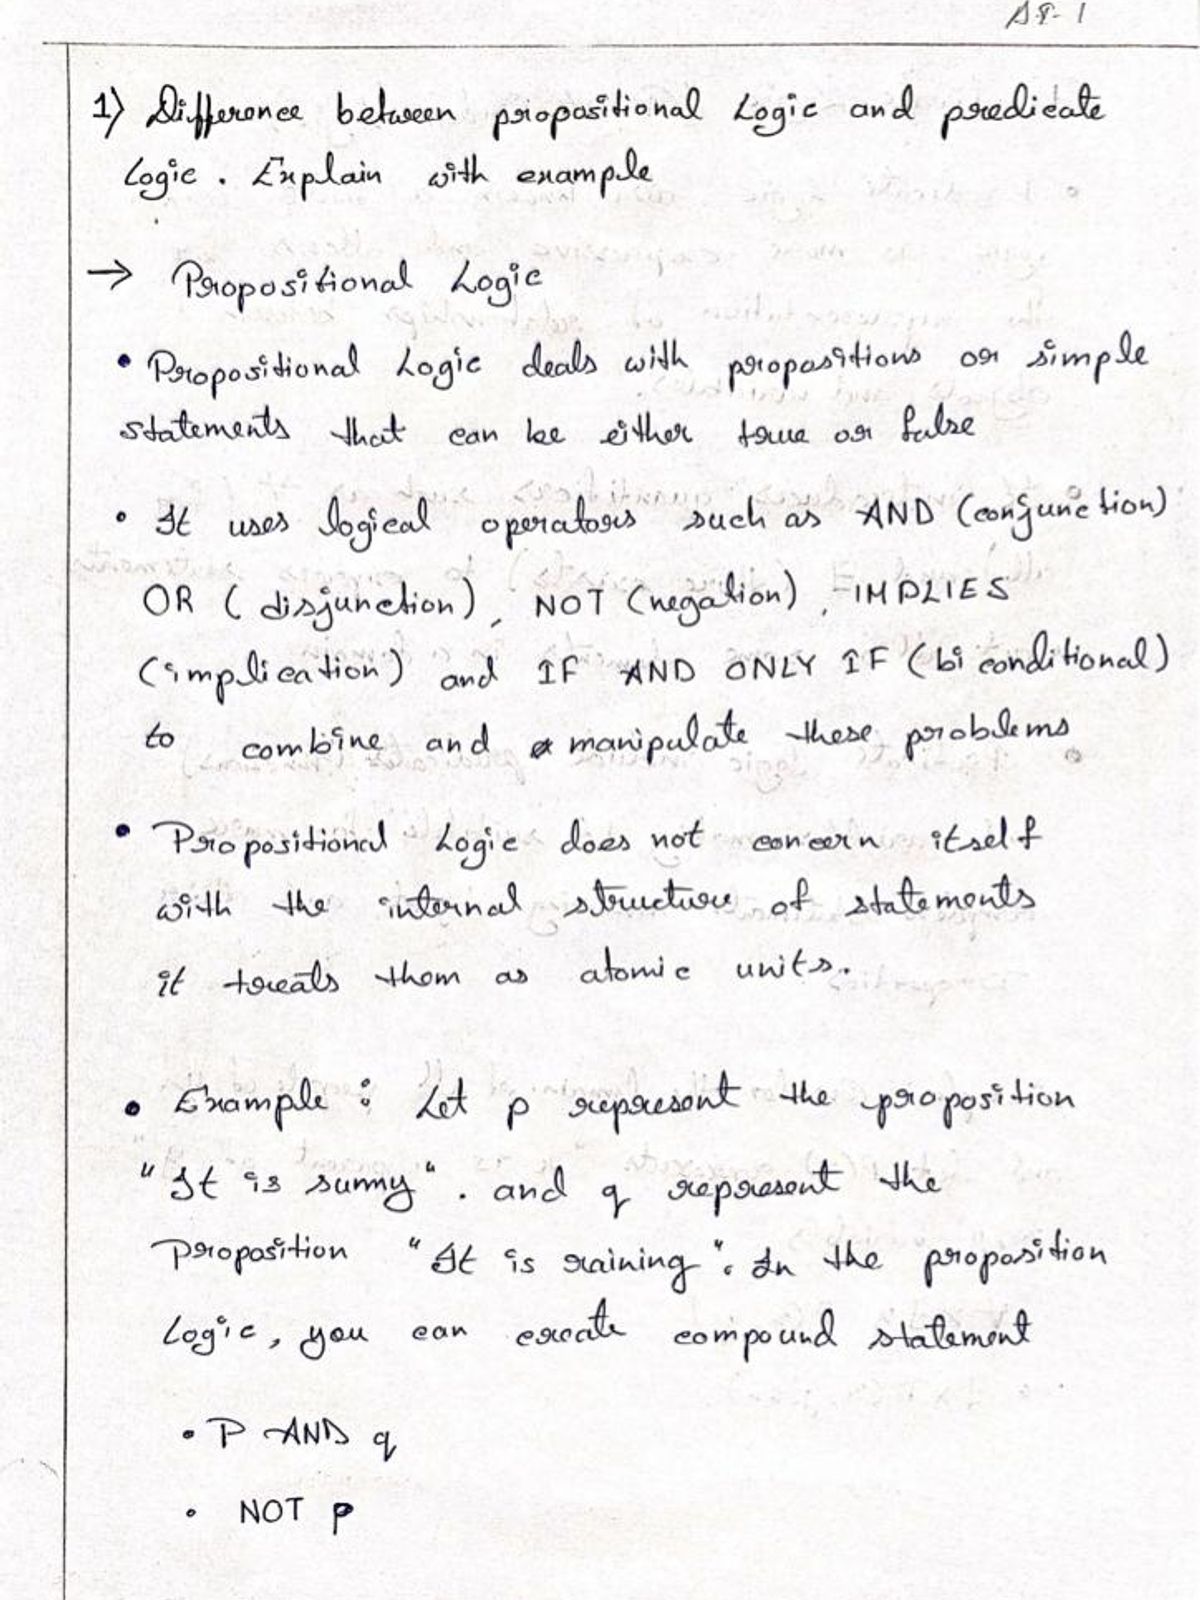 1) Difference between propositional Logic and predicate
Logic. Explain with example
→ Propositional Logic
• Propositional Logic deals with propositions or simple
statements that can be either true or false
• It uses logical operators such as AND (conjunction)
OR (disjunction), NOT (negation), IMPLIES
(implication) and IF AND ONLY IF (bi conditional)
to combine and manipulate these problems
• Propositional Logic does not concern itself
with the internal structure of statements
it treats them as atomic units.
• Example : Let p represent the proposition
"It is sunny". and q represent the
proposition "It is raining". In the proposition
Logic, you can create compound statement
• P AND q
• NOT p